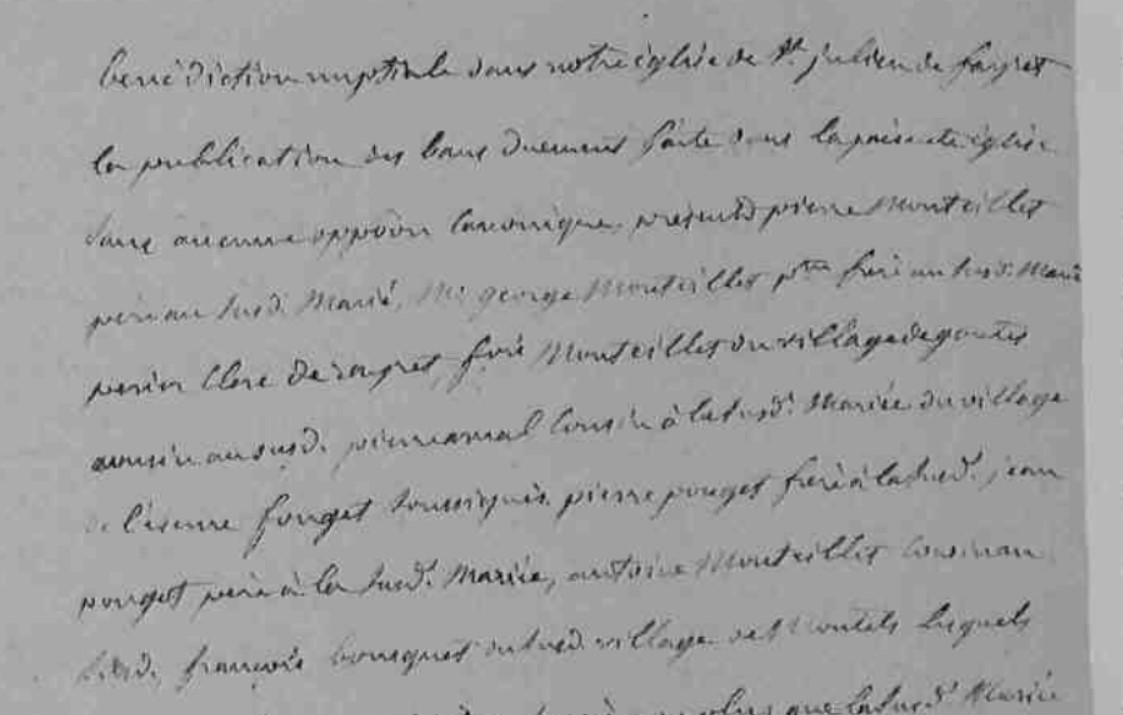 bénédiction nuptiale dans notre église de St. julien de farget
la publication des bans duement faite dans la présente église
sans aucune oppôon canonique, présents pierre Monteillet
père au susd. Marié, Mr george Monteillet ptre frère au susd. Marié
clerc Monteillet du village de goutes
cousin au susd. pierre amal cousin à la susd. Mariée du village
de soussignés pierre pouget frère à la susd. jean
pouget père à la susd. Mariée, antoine Monteillet cousin au
susd. françois bousquet du susd. village des Montels lesquels
que la susd. Mariée